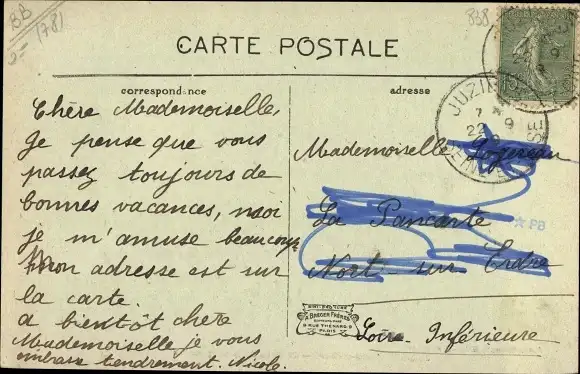 BB
(78)
838
CARTE POSTALE
correspondance
adresse
Chère Mademoiselle,
Je pense que vous
passez toujours de
bonnes vacances, moi
je m'amuse beaucoup
Mon adresse est sur
la carte.
a bientôt chère
Mademoiselle je vous
embrasse tendrement. Nicole.
JUZIERS
7
22 9
Mademoiselle
La Pancarte
Nort sur Erdre
Loire Inférieure
BREGER FRÈRES
9 RUE THÉNARD 9
PARIS